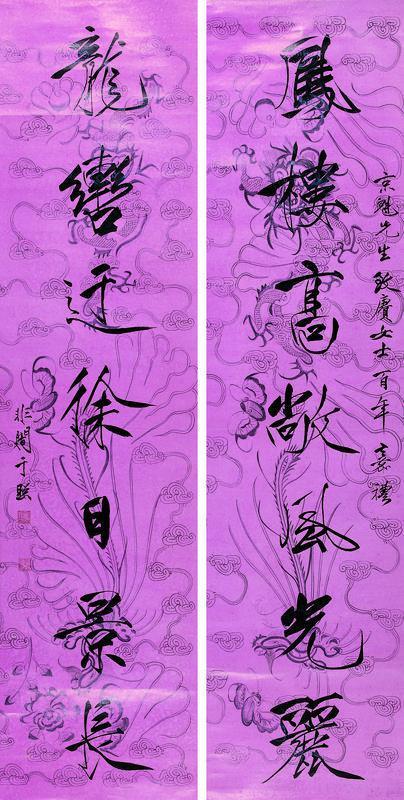 京魁先生毓賡女士百年嘉禮
鳳樓高敞風光麗
龍轡迂徐日景長
非闇于照